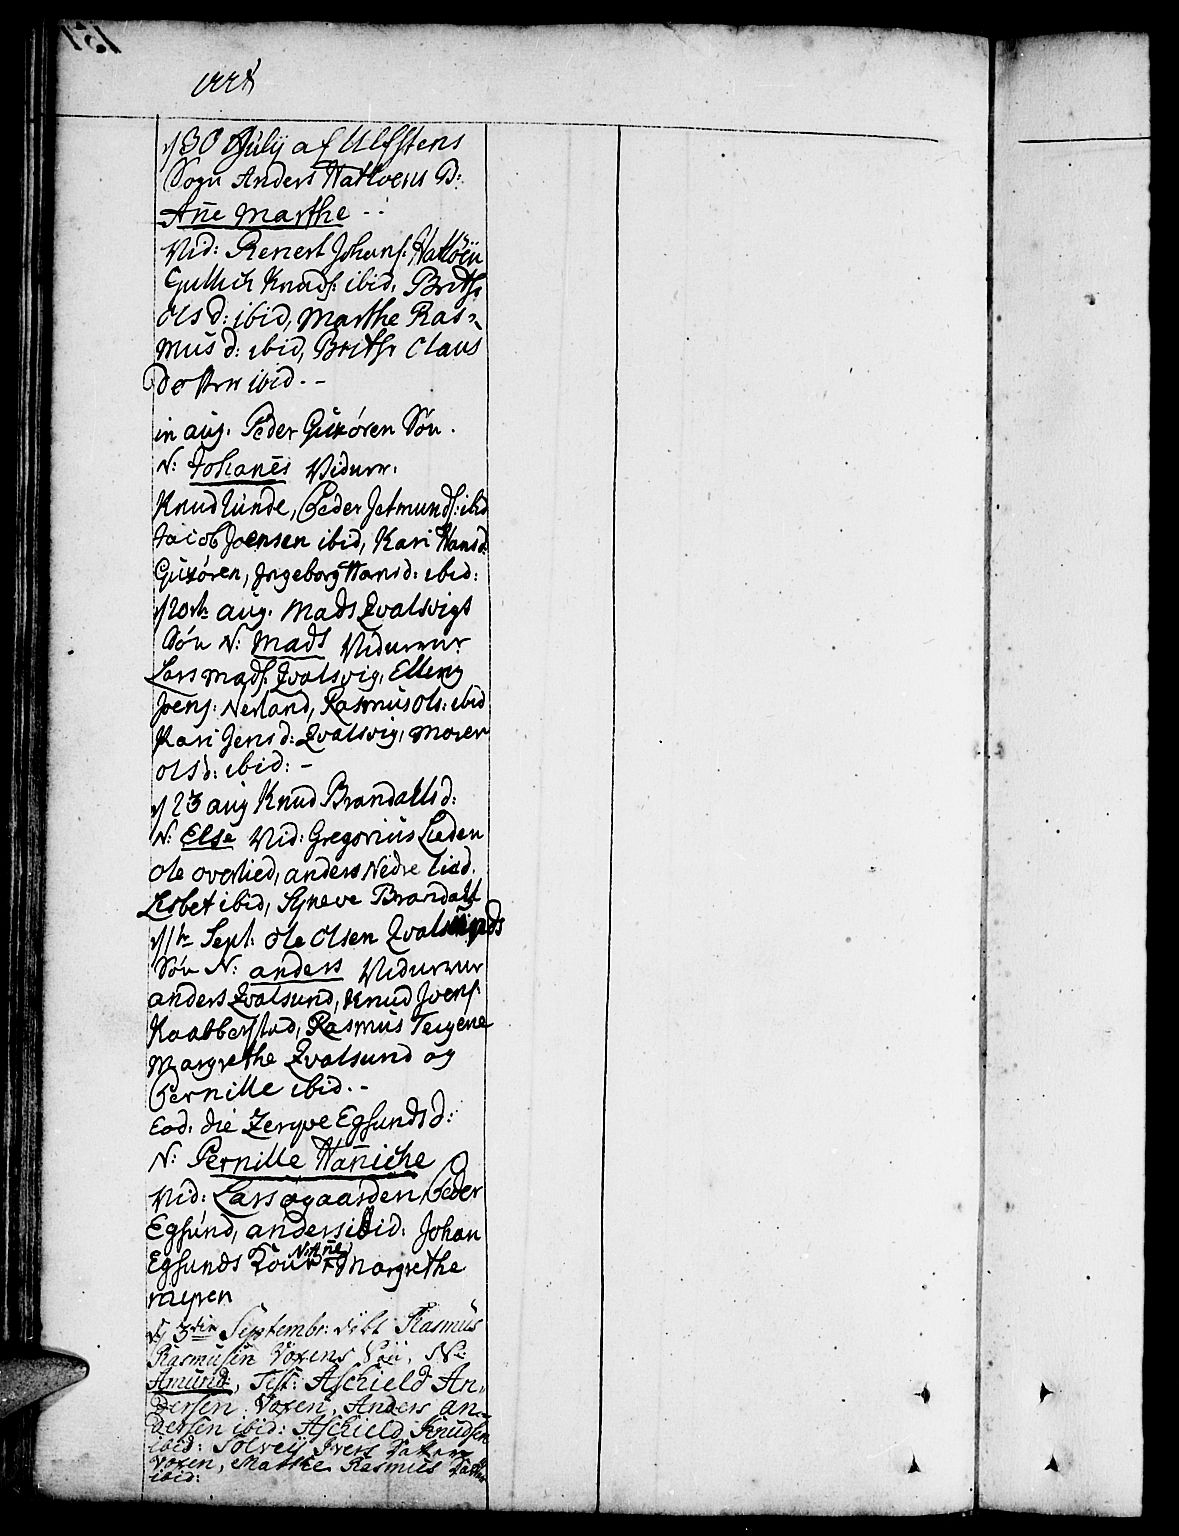 d 30 July af Ulfstens
Sogn Anders Hatløens D:
Añe Marthe -:
Vid: Renert Johans: Hatløen
Gullich Knuds: ibid, Brithe
Ols d: ibid, Marthe Ras-
mus d: ibid, Brithe Claus
Dotter ibid. -
in aug. Peder Guxøren Søn.
N: Johanes Vidner.
Knud Lunde, Peder Jetmunds: ibid
Jacob Joensen ibid, Kari Hans d:
Guxøren, Ingeborg Hans d: ibid:
d 20th aug. Mads Qvalsvigs
Søn N: Mads Vidner
Lars Mads: Qvalsvig, Elling
Joens: Nerland, Rasmus Ols: ibid
Kari Jens d: Qvalsvig, Maren
Ols d: ibid: -
d 23 aug Knud Brandalls d:
N: Else Vid: Gregorius Lieden
Ole Overlied, anders Nedre lied,
Lisbet ibid, Syneve Brandall
d 1te Sept. Ole Olsen Qvalsunds
Søn N: anders Vidner
anders Qvalsund, Knud Joens:
Kaabberstad, Rasmus Teigene
Margrethe Qvalsund og
Pernille ibid. -
Eod: die Egsunds d:
N: Pernille Hañiche
Vid: Lars øgaarden, Peder
Egsund, anders ibid: Johan
Egsunds Kone N: Añe
Margrethe
d 3die Septembr: døbt Rasmus
Rasmusen Voxens Søn, N:
Amund, Test: Aschield An-
dersen Voxen, Anders An-
dersen ibid: Aschield Knudsen
ibid: Solvei Ivers Datter
Voxen, Marthe Rasmus Datter
ibid: